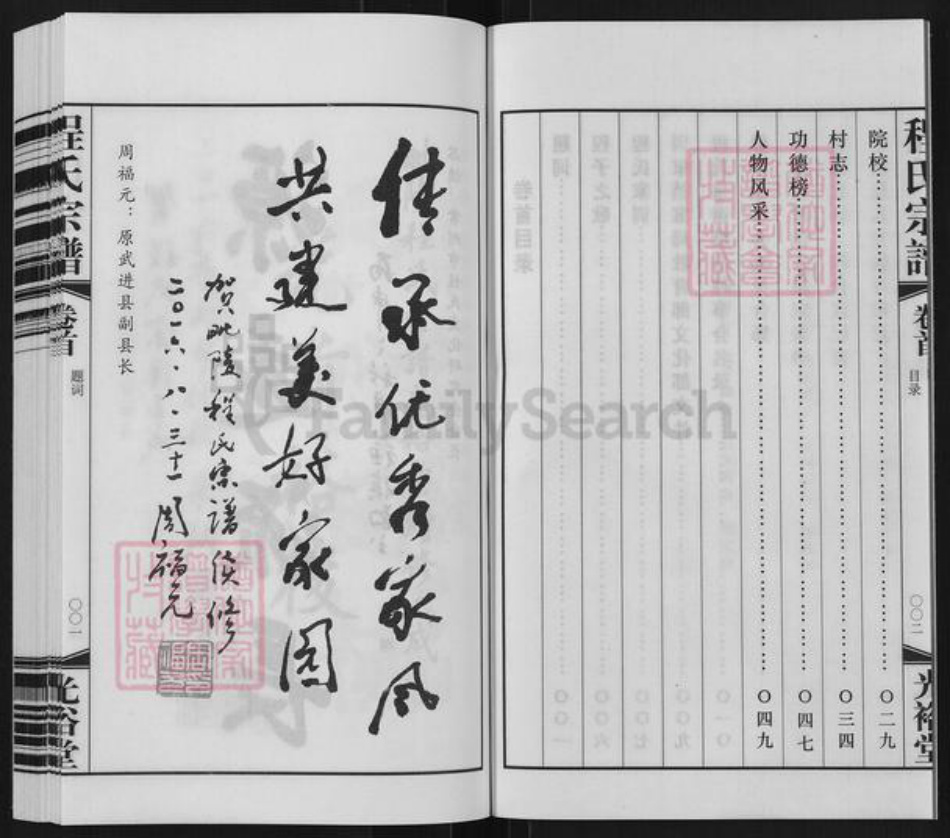 程氏宗譜
卷首
目录
〇〇二
光裕堂
院校……〇二九
村志……〇三四
功德榜……〇四七
人物风采……〇四九
佳承优秀家风
共建美好家园
贺毗陵程氏宗谱续修
二〇一六·八·三十一
周福元
周福元：原武进县副县长
程氏宗譜
卷首
题词
〇〇一
光裕堂
FamilySearch